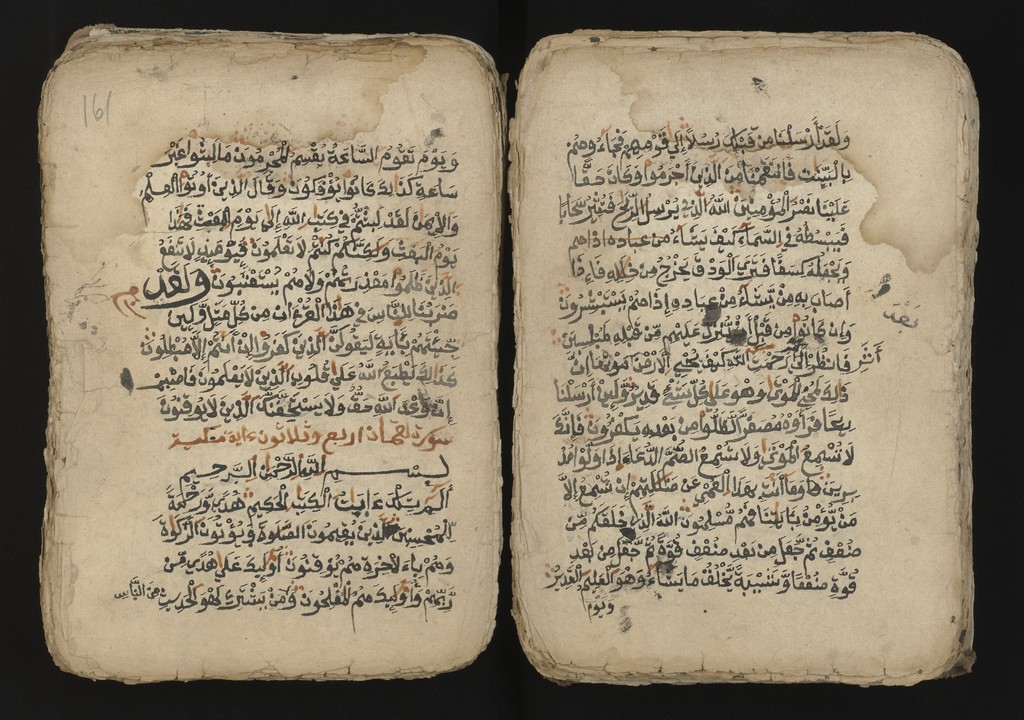 وَلَقَدْ أَرْسَلْنَا مِن قَبْلِكَ رُسُلاً إِلَى قَوْمِهِمْ فَجَاءُوهُم
بِالْبَيِّنَاتِ فَانتَقَمْنَا مِنَ الَّذِينَ أَجْرَمُوا وَكَانَ حَقًّا
عَلَيْنَا نَصْرُ الْمُؤْمِنِينَ اللَّهُ الَّذِي يُرْسِلُ الرِّيَاحَ فَتُثِيرُ سَحَابًا
فَيَبْسُطُهُ فِي السَّمَاءِ كَيْفَ يَشَاءُ
وَيَجْعَلُهُ كِسَفًا فَتَرَى الْوَدْقَ يَخْرُجُ مِنْ خِلَالِهِ فَإِذَا
أَصَابَ بِهِ مَنْ يَشَاءُ مِنْ عِبَادِهِ إِذَا هُمْ يَسْتَبْشِرُونَ
وَإِن كَانُوا مِن قَبْلِ أَن يُنَزَّلَ عَلَيْهِم مِّن قَبْلِهِ لَمُبْلِسِينَ
فَانظُرْ إِلَى أَثَرِ رَحْمَتِ اللَّهِ كَيْفَ يُحْيِي الْأَرْضَ بَعْدَ مَوْتِهَا إِنَّ
ذَلِكَ لَمُحْيِ الْمَوْتَى وَهُوَ عَلَى كُلِّ شَيْءٍ قَدِيرٌ وَلَئِنْ أَرْسَلْنَا
رِيحًا فَرَأَوْهُ مُصْفَرًّا لَّظَلُّوا مِن بَعْدِهِ يَكْفُرُونَ فَإِنَّكَ
لَا تُسْمِعُ الْمَوْتَى وَلَا تُسْمِعُ الصُّمَّ الدُّعَاءَ إِذَا وَلَّوْا مُدْ
بِرِينَ وَمَا أَنتَ بِهَادِ الْعُمْيِ عَن ضَلَالَتِهِمْ إِن تُسْمِعُ إِلَّا
مَنْ يُؤْمِنُ بِآيَاتِنَا فَهُم مُّسْلِمُونَ اللَّهُ الَّذِي خَلَقَكُم مِّن
ضُعْفٍ ثُمَّ جَعَلَ مِن بَعْدِ ضُعْفٍ قُوَّةً ثُمَّ جَعَلَ مِن بَعْدِ
قُوَّةٍ ضُعْفًا وَشَيْبَةً يَخْلُقُ مَا يَشَاءُ وَهُوَ الْعَلِيمُ الْقَدِيرُ
وَيَوْمَ
161
وَيَوْمَ تَقُومُ السَّاعَةُ يُقْسِمُ الْمُجْرِمُونَ مَا لَبِثُوا غَيْرَ
سَاعَةٍ كَذَلِكَ كَانُوا يُؤْفَكُونَ وَقَالَ الَّذِينَ أُوتُوا الْعِلْمَ
وَالْإِيمَانَ لَقَدْ لَبِثْتُمْ فِي كِتَابِ اللَّهِ إِلَى يَوْمِ الْبَعْثِ فَهَذَا
يَوْمُ الْبَعْثِ وَلَكِنَّكُمْ كُنتُمْ لَا تَعْلَمُونَ فَيَوْمَئِذٍ لَا تَنفَعُ
الَّذِينَ ظَلَمُوا مَعْذِرَتُهُمْ وَلَا هُمْ يُسْتَعْتَبُونَ وَلَقَدْ
ضَرَبْنَا لِلنَّاسِ فِي هَذَا الْقُرْءَانِ مِن كُلِّ مَثَلٍ وَلَئِن
جِئْتَهُم بِآيَةٍ لَيَقُولَنَّ الَّذِينَ كَفَرُوا إِنْ أَنتُمْ إِلَّا مُبْطِلُونَ
كَذَلِكَ يَطْبَعُ اللَّهُ عَلَى قُلُوبِ الَّذِينَ لَا يَعْلَمُونَ فَاصْبِرْ
إِنَّ وَعْدَ اللَّهِ حَقٌّ وَلَا يَسْتَخِفَّنَّكَ الَّذِينَ لَا يُوقِنُونَ
سورة لقمان اربع وثلاثون ءاية مكية
بِسْمِ اللَّهِ الرَّحْمَنِ الرَّحِيمِ
الٓمٓ تِلْكَ ءَايَاتُ الْكِتَابِ الْحَكِيمِ هُدًى وَرَحْمَةً
لِّلْمُحْسِنِينَ الَّذِينَ يُقِيمُونَ الصَّلَوةَ وَيُؤْتُونَ الزَّكَوةَ
وَهُم بِالْآخِرَةِ هُمْ يُوقِنُونَ أُولَئِكَ عَلَى هُدًى مِّن
رَّبِّهِمْ وَأُولَئِكَ هُمُ الْمُفْلِحُونَ وَمِنَ النَّاسِ مَن يَشْتَرِي لَهْوَ الْحَدِيثِ